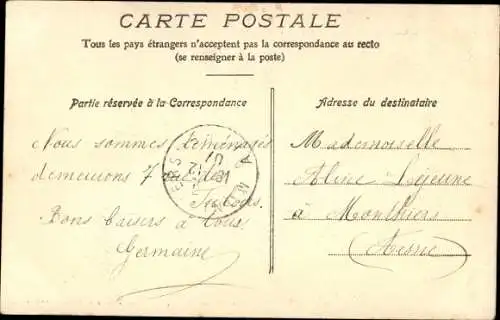 CARTE POSTALE
Tous les pays étrangers n'acceptent pas la correspondance au recto
(se renseigner à la poste)
Partie réservée à la Correspondance
Adresse du destinataire
Nous sommes déménagés
demeurons 7
Bons baisers à tous
Germaine
Mademoiselle
Aline Lejeune
à Monthiers
(Aisne)